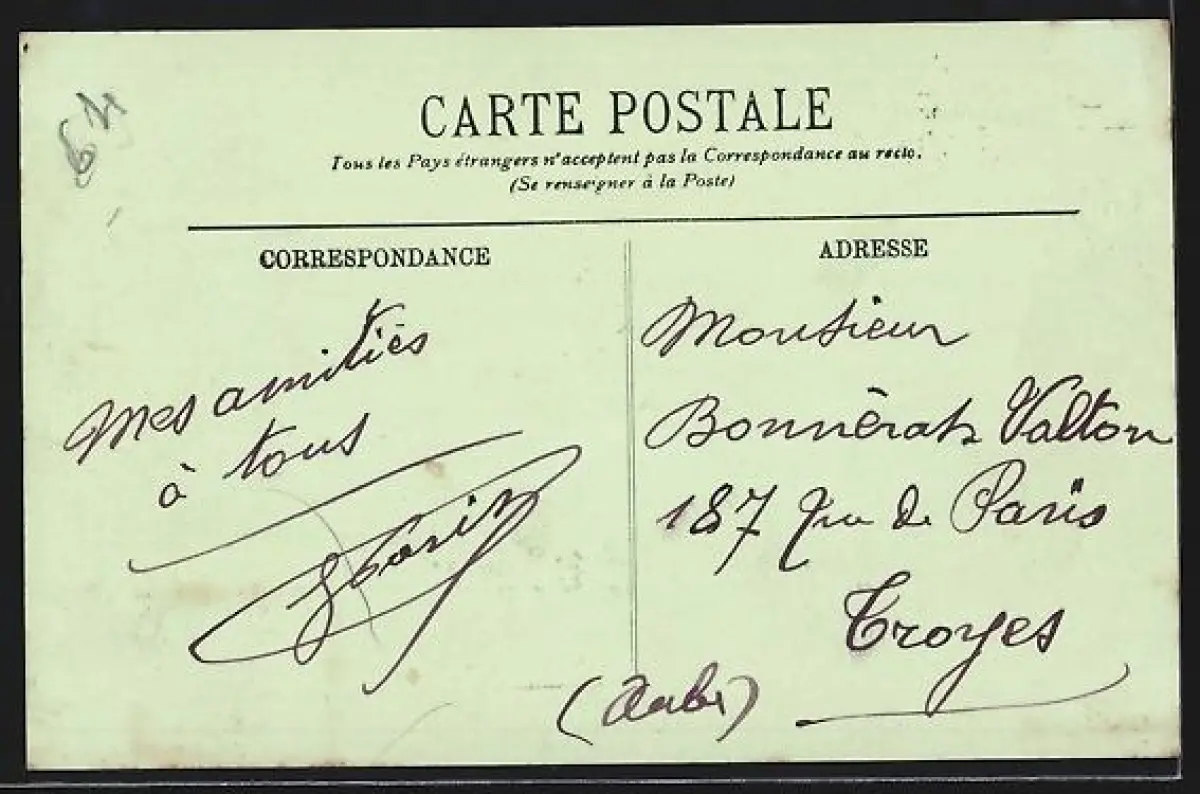 64
CARTE POSTALE
Tous les Pays étrangers n'acceptent pas la Correspondance au recto.
(Se renseigner à la Poste)
CORRESPONDANCE
Mes amitiés
à tous
ADRESSE
Monsieur
Bonnérat Valton
187 de Paris
Troyes
(Aube)